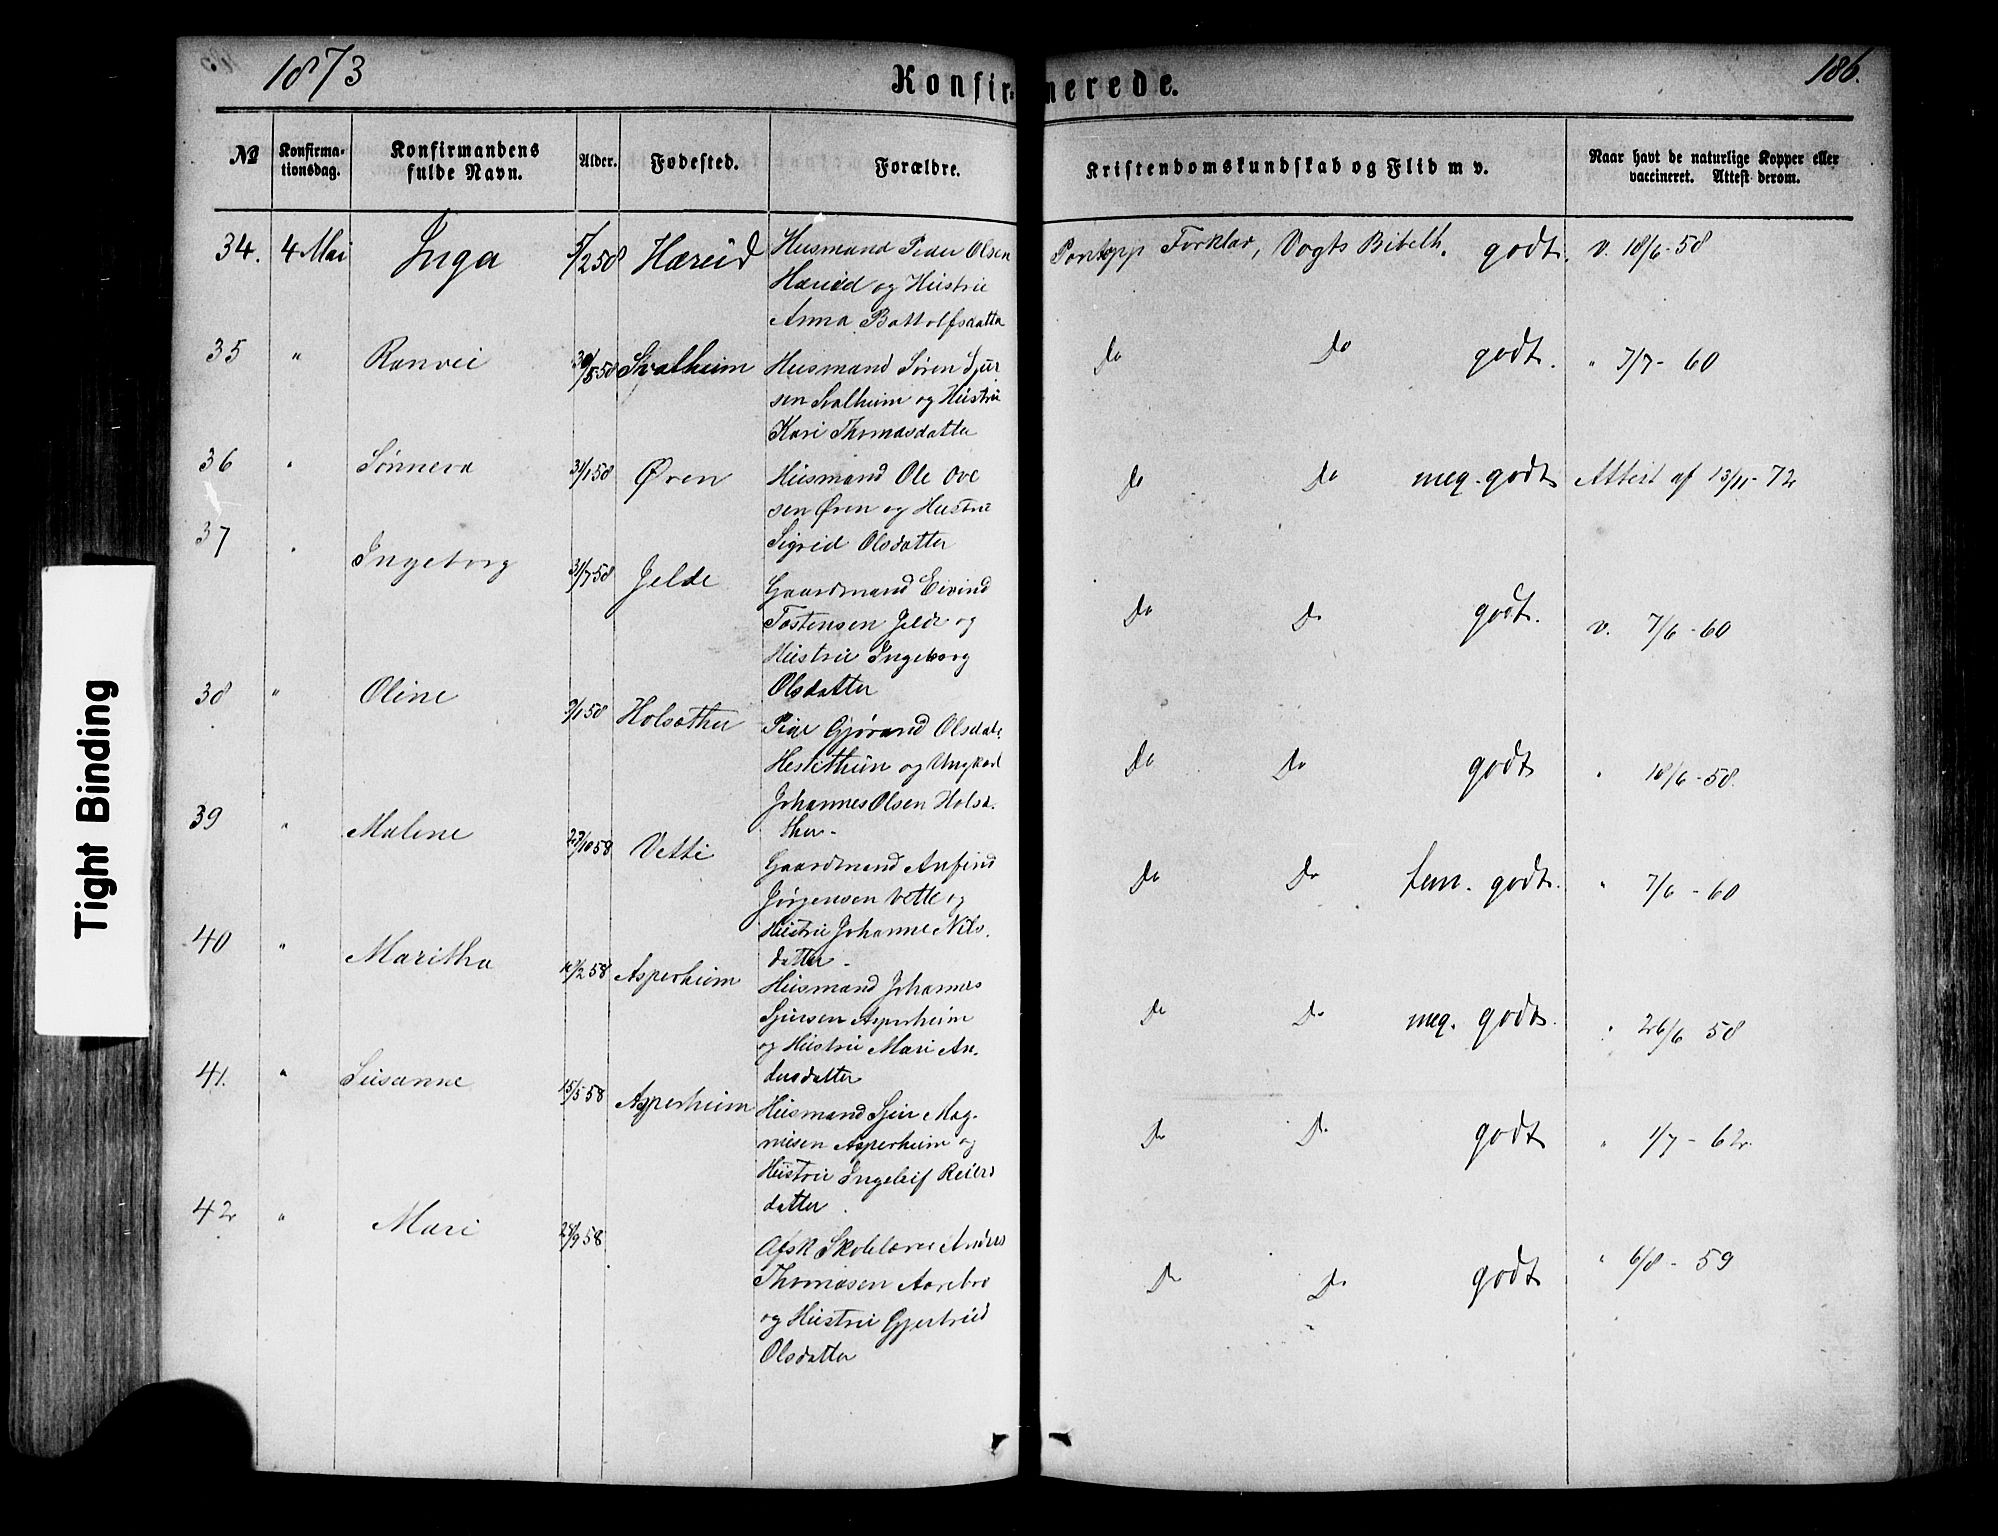 1873
Konfirmerede.
186.
№ Konfirma-tionsdag. Konfirmandens fulde Navn. Alder. Fødested. Forældre. Kristendomskundskab og Flid m v. Naar havt de naturlige Kopper eller vaccineret. Attest derom.
34. 4 Mai Inga 5/2 58 Hæreid Husmand Peder Olsen Pontopp Forklar, Vogts Bibelh. godt. v. 18/6-58
Hæreid og Hustru
Anna Bottolfsdatter
35 " Ranvei 30/5 58 Svalheim Husmand Søren Sjur Do Do godt. " 7/7-60
sen Svalheim og Hustru
Kari Thomasdatter
36 " Sønneva 31/1 58 Øren Husmand Ole Ove Do Do meg. godt Attest af 13/11-72
sen Øren og Hustru
Sigrid Olsdatter
37 " Ingeborg 31/7 58 Jelde Gaardmand Eivind Do Do godt. v. 7/6-60
Tostensen Jelde og
Hustru Ingeborg
Olsdatter
38 " Oline 9/1 58 Holsæther Pige Gjørand Olsdat. Do Do godt " 18/6-58.
Hestethun og Ungkarl
Johannes Olsen Holsæ.
ther-
39 " Malene 27/10 58 Vetti Gaardmand Anfind Do Do tem. godt. " 7/6-60
Jørgensen Vette og
Hustru Johanne Nils.
datter-
40 " Maritha 12/2 58 Asperheim Husmand Johannes Do Do meg. godt. " 26/6 58
Sjursen Asperheim
og Hustru Mari An.
dersdatter
41. " Susanne 15/5 58 Asperheim Husmand Sjur Mag- Do Do godt " 1/7-62.
nusen Asperheim og
Hustru Ingeleif Reiers
datter.
42 " Mari 28/9 58 Afsk Skolelærer Anders Do Do godt " 6/8-59
Thomasen Aarebro
og Hustru Gjertrud
Olsdatter
Tight Binding